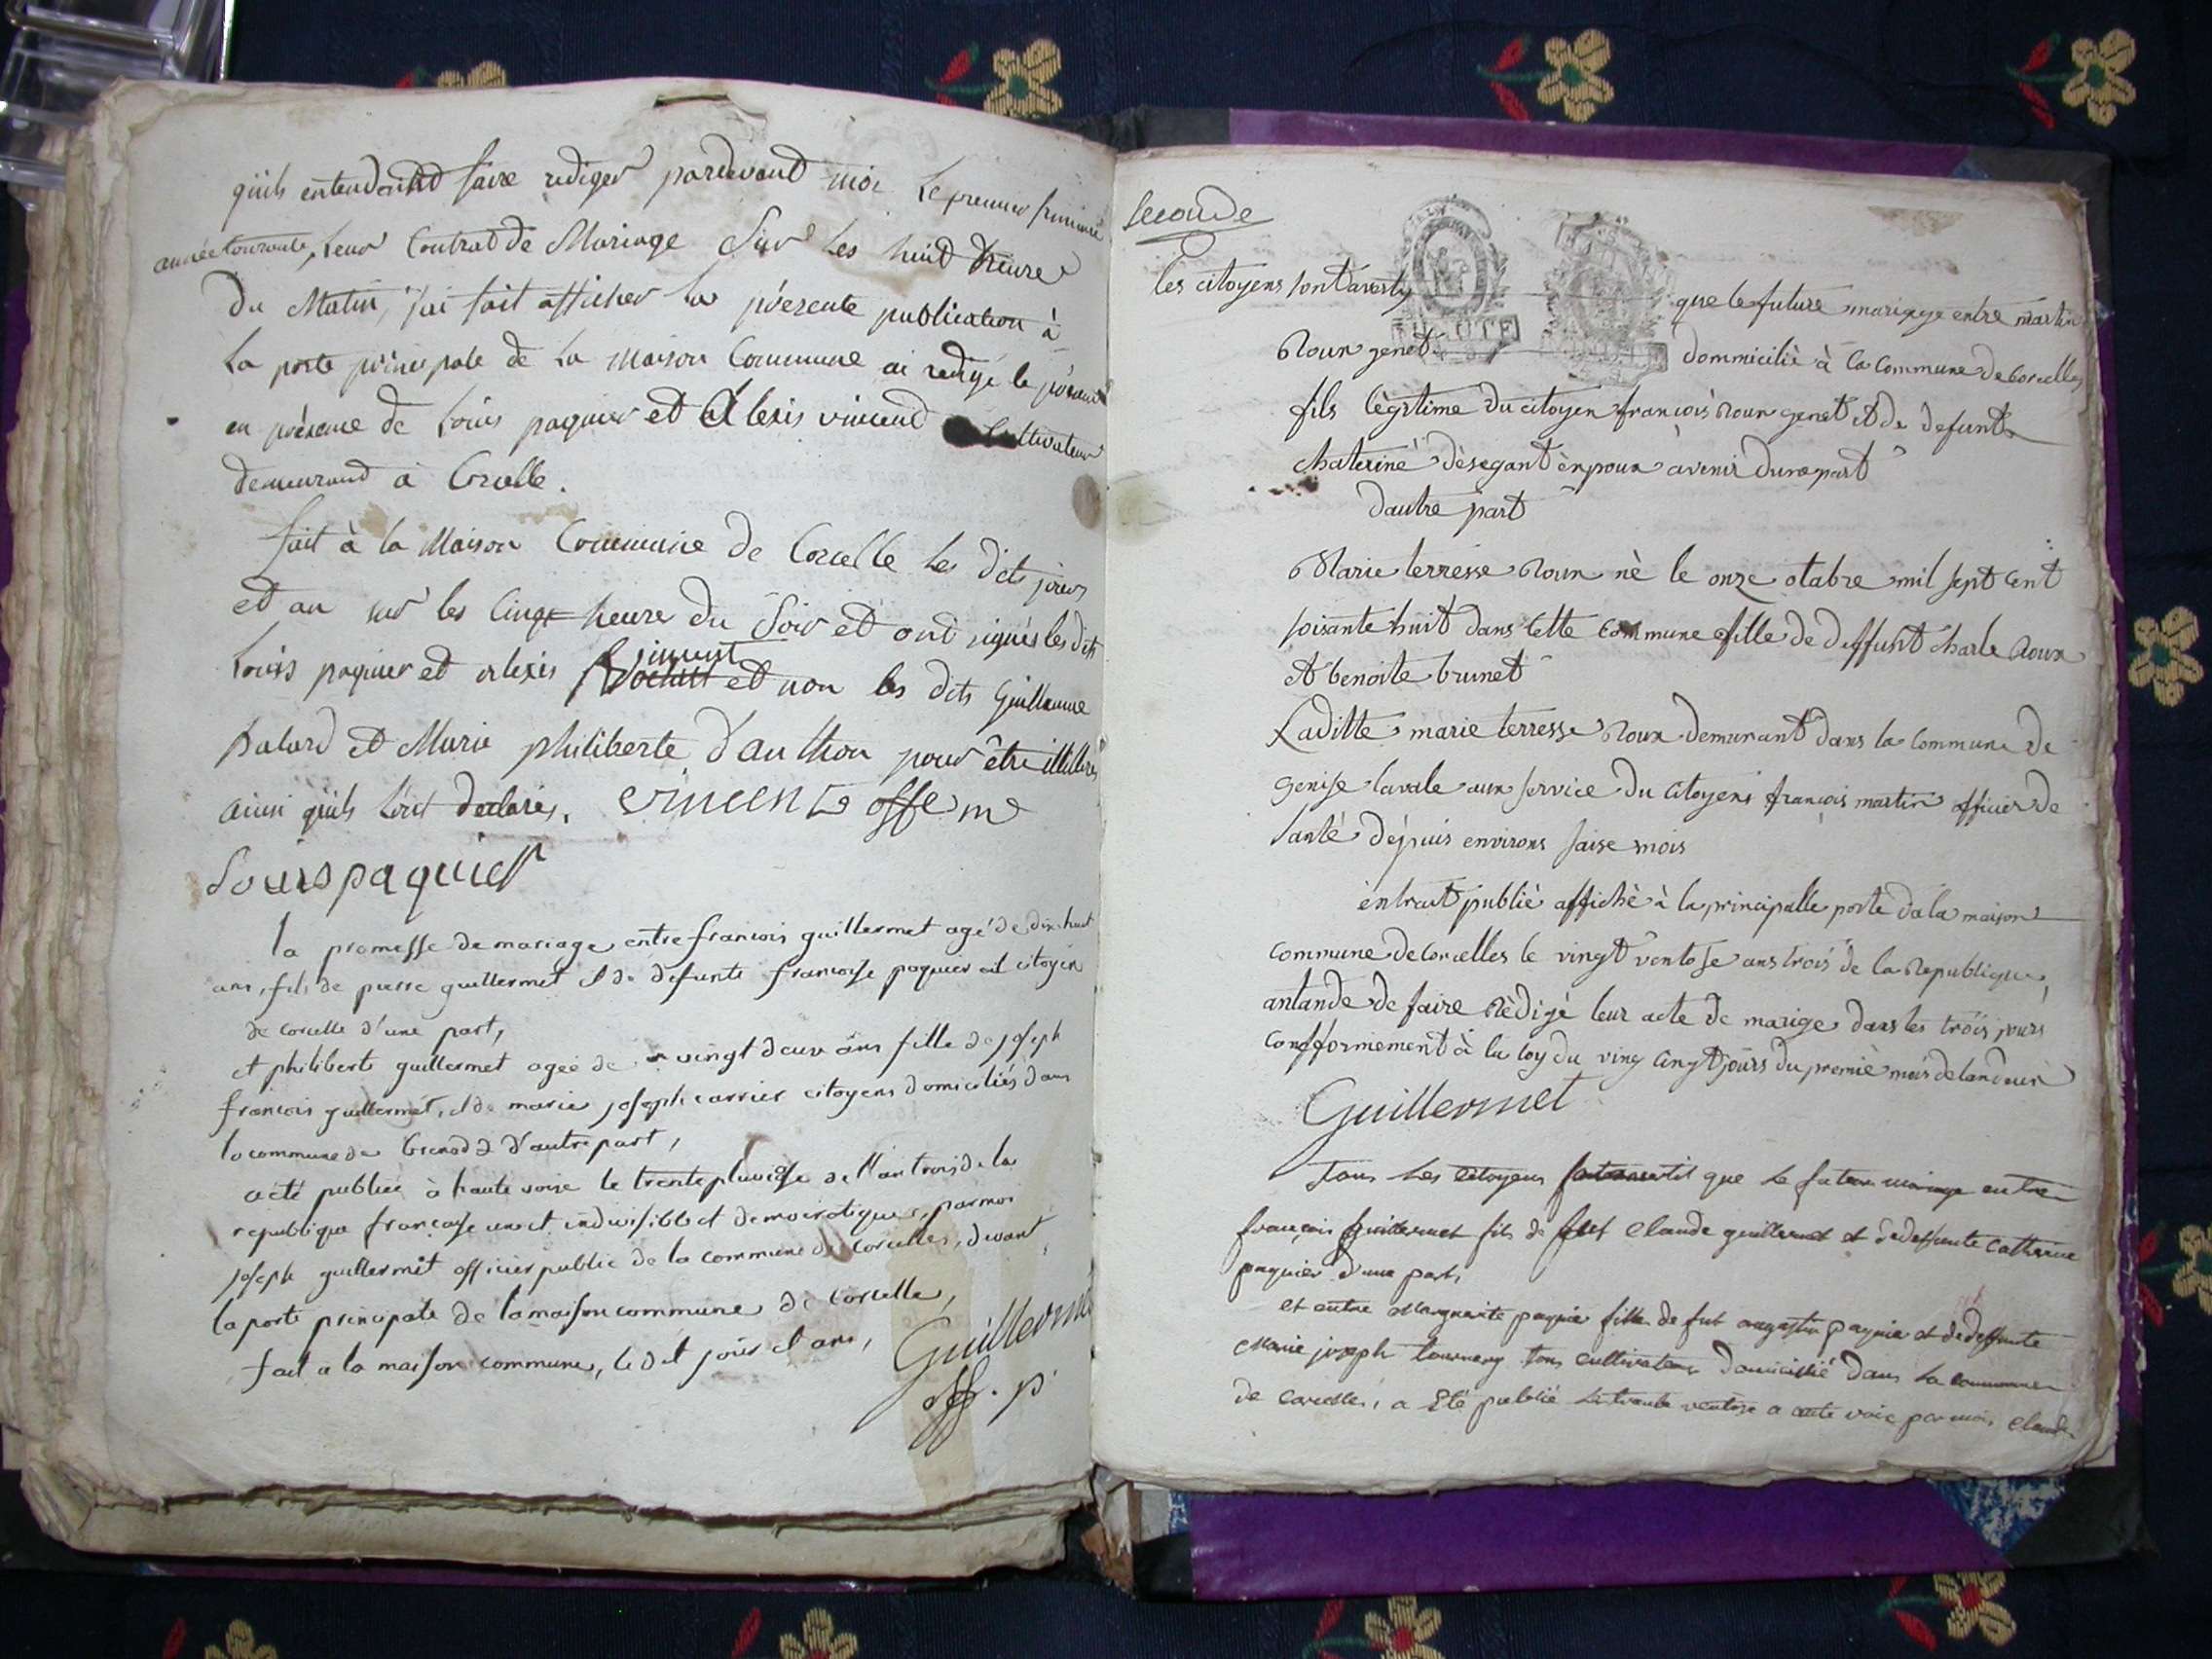 qu'ils entendoint faire rediger pardevant moi le premier frimaire
année couroute, leur Contrat de Mariage Sur les huit heures
du Matin, j'ai fait afficher la présente publication à
la porte principale de la Maison Commune ai redigé le présent
en présence de Louis paquier et Alexis vincend Cultivateur
demeurand à Corcelle.
fait à la Maison Commune de Corcelle les dits jours
et an sur les Cinq heure du Soir et ont signés les dits
vincent
Louis paquier et alexis et non les dits Guillaume
balard et Marie philiberte d'authon pour être illitteres
ainsi qu'ils l'ont declarés. vincent offe m
Louis paquier
la promesse de mariage entre francois guillermet agé de dix huit
ans, fils de pierre guillermet et de defunte francoise paquier citoyen
de corcelle d'une part,
et philiberte guillermet agee de vingt deux ans fille de joseph
francois guillermet, et de marie joseph carrier citoyens domiciliés dans
la commune de d'autre part,
acte publiée à haute voise le trente pluviose de l'an trois de la
republique francaise une et indivisible et democratique, par moi
joseph guillermet officier public de la commune de corcelles, devant
la porte principale de la maison commune de corcelle,
fait a la maison commune, le dit jour et ans,
Guillermet
off. p.
seconde
les citoyens sont averty que le future marigye entre martin
Roux genet dommicilié à la commune de corcelles
fils lègitime du citoyen françois Roux genet et de defunte
chaterine dèsegant èrpoux àvenir dune part
dautre part
Marie terresse Roux nè le onze otabre mil sept cent
soisante huit dans cette commune fille de deffunt charle Roux
et benoite brunet
Laditte marie terresse Roux demurant dans la commune de
genise lavale aux service du citoyens françois martin officier de
santé dépuis environs saise mois
èntrait publiè affichè à la principalle porte da la maison
commune de corcelles le vingt ventose ans trois de la Republique,
antande de faire Rèdigé leur acte de marige dans les trois jours
confformement à la loy du ving cinqt jours du premiè mois de landeux
Guillermet
Tous les citoyens que le futeur mariage entre
françois guillermet fils de fut Claude guillermet et de deffunte Catherine
paquier d'une part,
et entre Marguerite paquie fille de fut augustin paquie et de deffunte
Marie joseph tournery tous cultivateur domicillié dans la commune
de corcelles, a Eté publié le trante ventose a aute voix par moi, claude